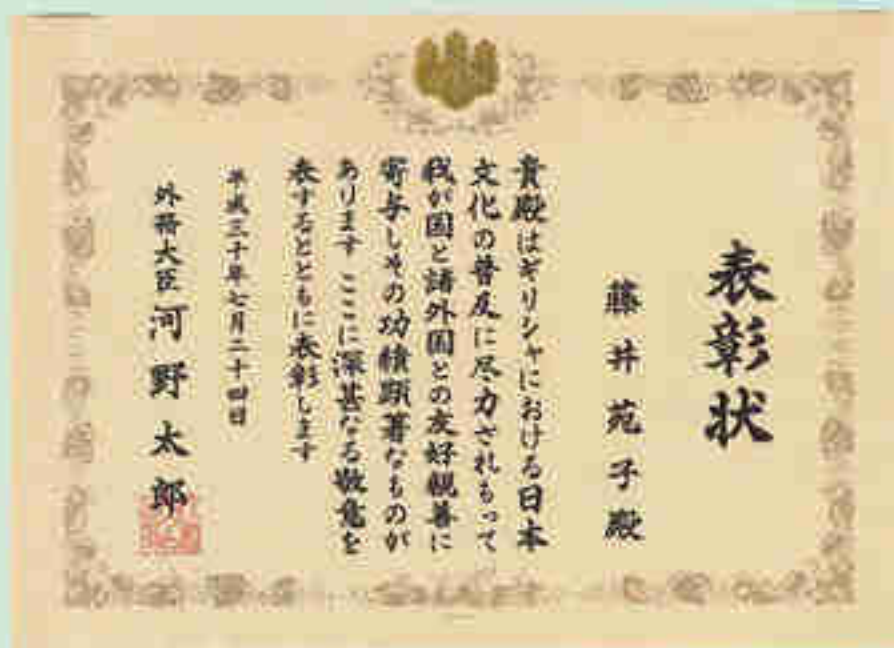 表彰状
藤井苑子殿
貴殿はギリシャにおける日本
文化の普及に尽力されもって
我が国と諸外国との友好親善に
寄与しその功績顕著なものが
あります ここに深甚なる敬意を
表するとともに表彰します
平成三十年七月二十四日
外務大臣 河野太郎